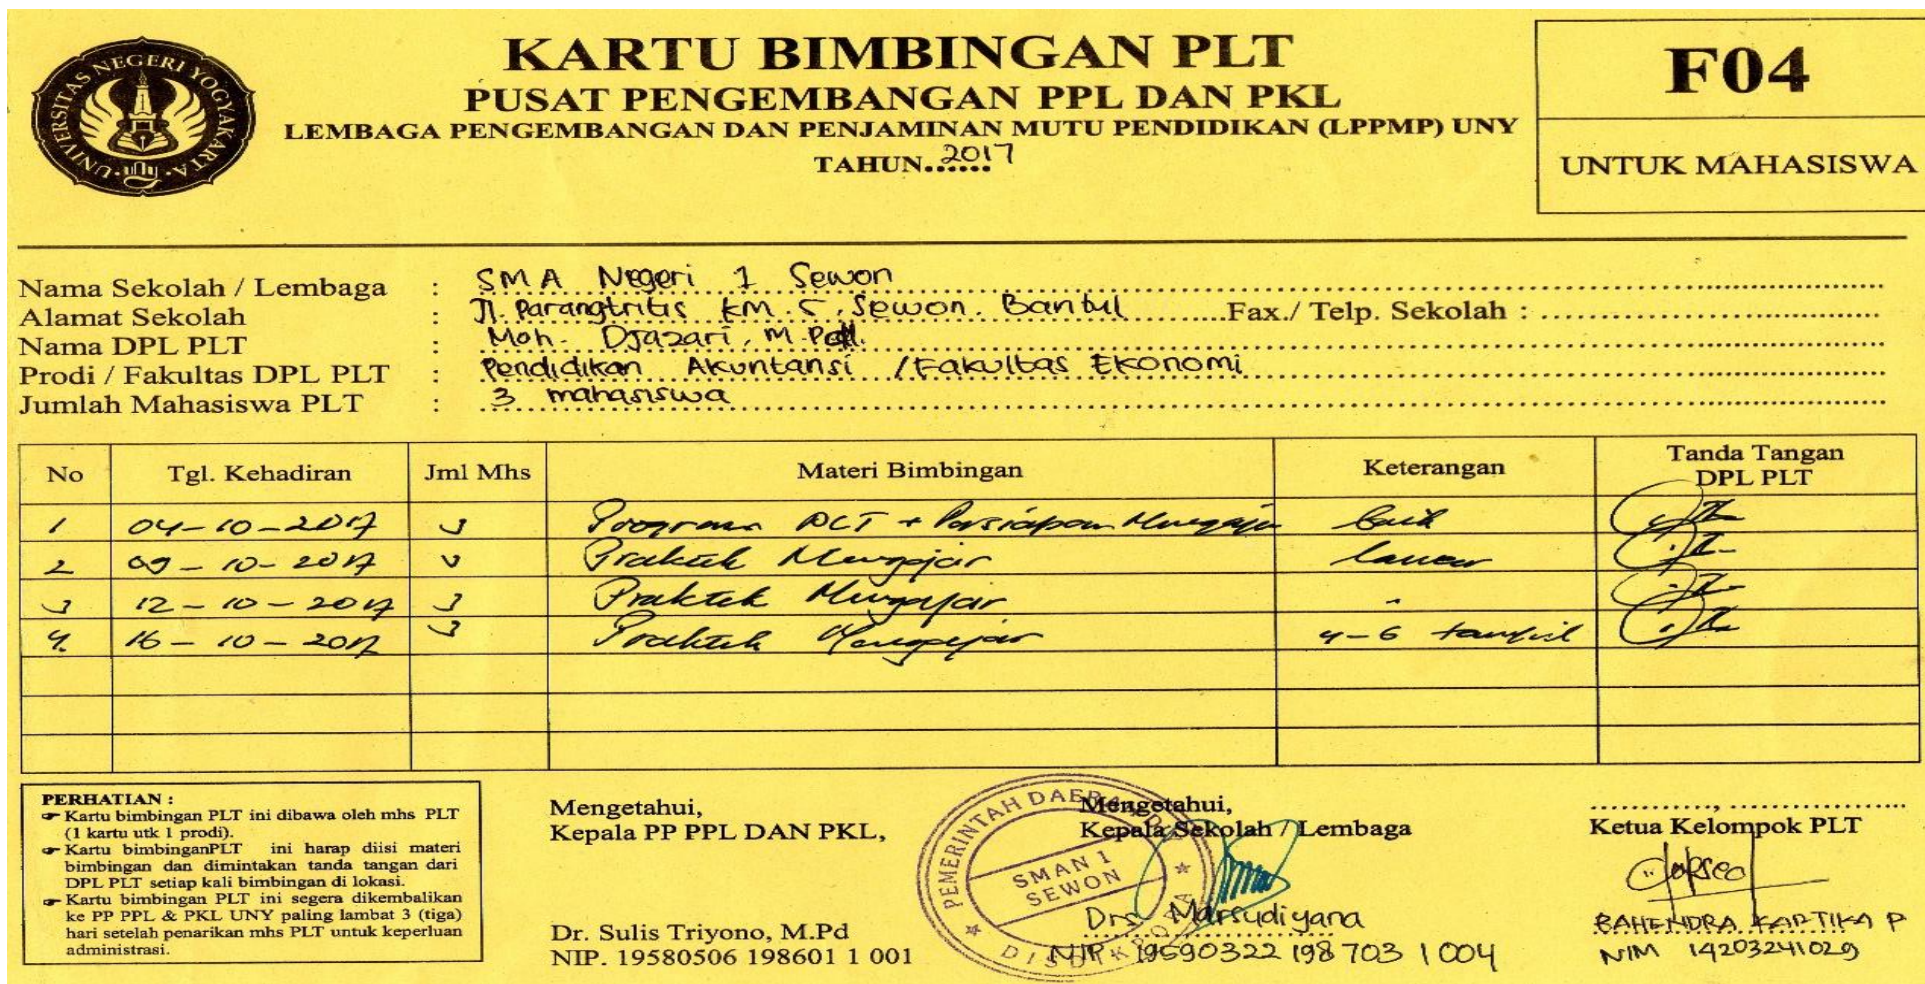 UNIVERSITAS NEGERI YOGYAKARTA
KARTU BIMBINGAN PLT
PUSAT PENGEMBANGAN PPL DAN PKL
LEMBAGA PENGEMBANGAN DAN PENJAMINAN MUTU PENDIDIKAN (LPPMP) UNY
TAHUN...2017
F04
UNTUK MAHASISWA
Nama Sekolah / Lembaga : SMA Negeri 1 Sewon
Alamat Sekolah : Jl. Parangtritis km. 5, Sewon. Bantul Fax./ Telp. Sekolah :
Nama DPL PLT : Moh. Djazari, M.Pd.
Prodi / Fakultas DPL PLT : Pendidikan Akuntansi / Fakultas Ekonomi
Jumlah Mahasiswa PLT : 3 mahasiswa
No Tgl. Kehadiran Jml Mhs Materi Bimbingan Keterangan Tanda Tangan DPL PLT
1 04-10-2017 3 Program PLT + Persiapan Mengajar baik
2 09-10-2017 3 Praktek Mengajar lancar
3 12-10-2017 3 Praktek Mengajar
4. 16-10-2017 3 Praktek Mengajar 4-6 tampil
PERHATIAN :
Kartu bimbingan PLT ini dibawa oleh mhs PLT
(1 kartu utk 1 prodi).
Kartu bimbinganPLT ini harap diisi materi
bimbingan dan dimintakan tanda tangan dari
DPL PLT setiap kali bimbingan di lokasi.
Kartu bimbingan PLT ini segera dikembalikan
ke PP PPL & PKL UNY paling lambat 3 (tiga)
hari setelah penarikan mhs PLT untuk keperluan
administrasi.
Mengetahui,
Kepala PP PPL DAN PKL,
Dr. Sulis Triyono, M.Pd
NIP. 19580506 198601 1 001
Mengetahui,
Kepala Sekolah / Lembaga
PEMERINTAH DAERAH DIY
SMAN 1
SEWON
DISDIKPORA
Drs. Marsudiyana
NIP 19590322 198703 1 004
Ketua Kelompok PLT
RAHENDRA KARTIKA P
NIM 14203241029